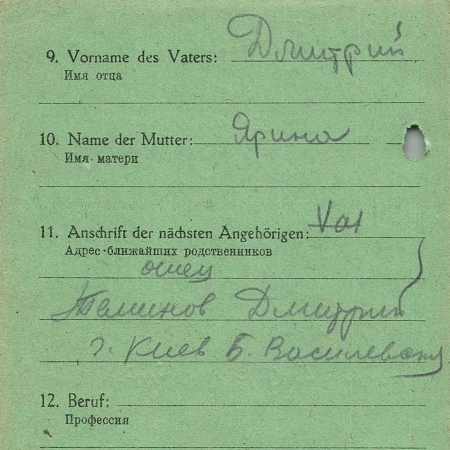 9. Vorname des Vaters: Дмитрий
Имя отца
10. Name der Mutter: Ярина
Имя матери
11. Anschrift der nächsten Angehörigen:
Адрес ближайших родственников
отец
Дмитрий
г. Киев Б.
12. Beruf:
Профессия